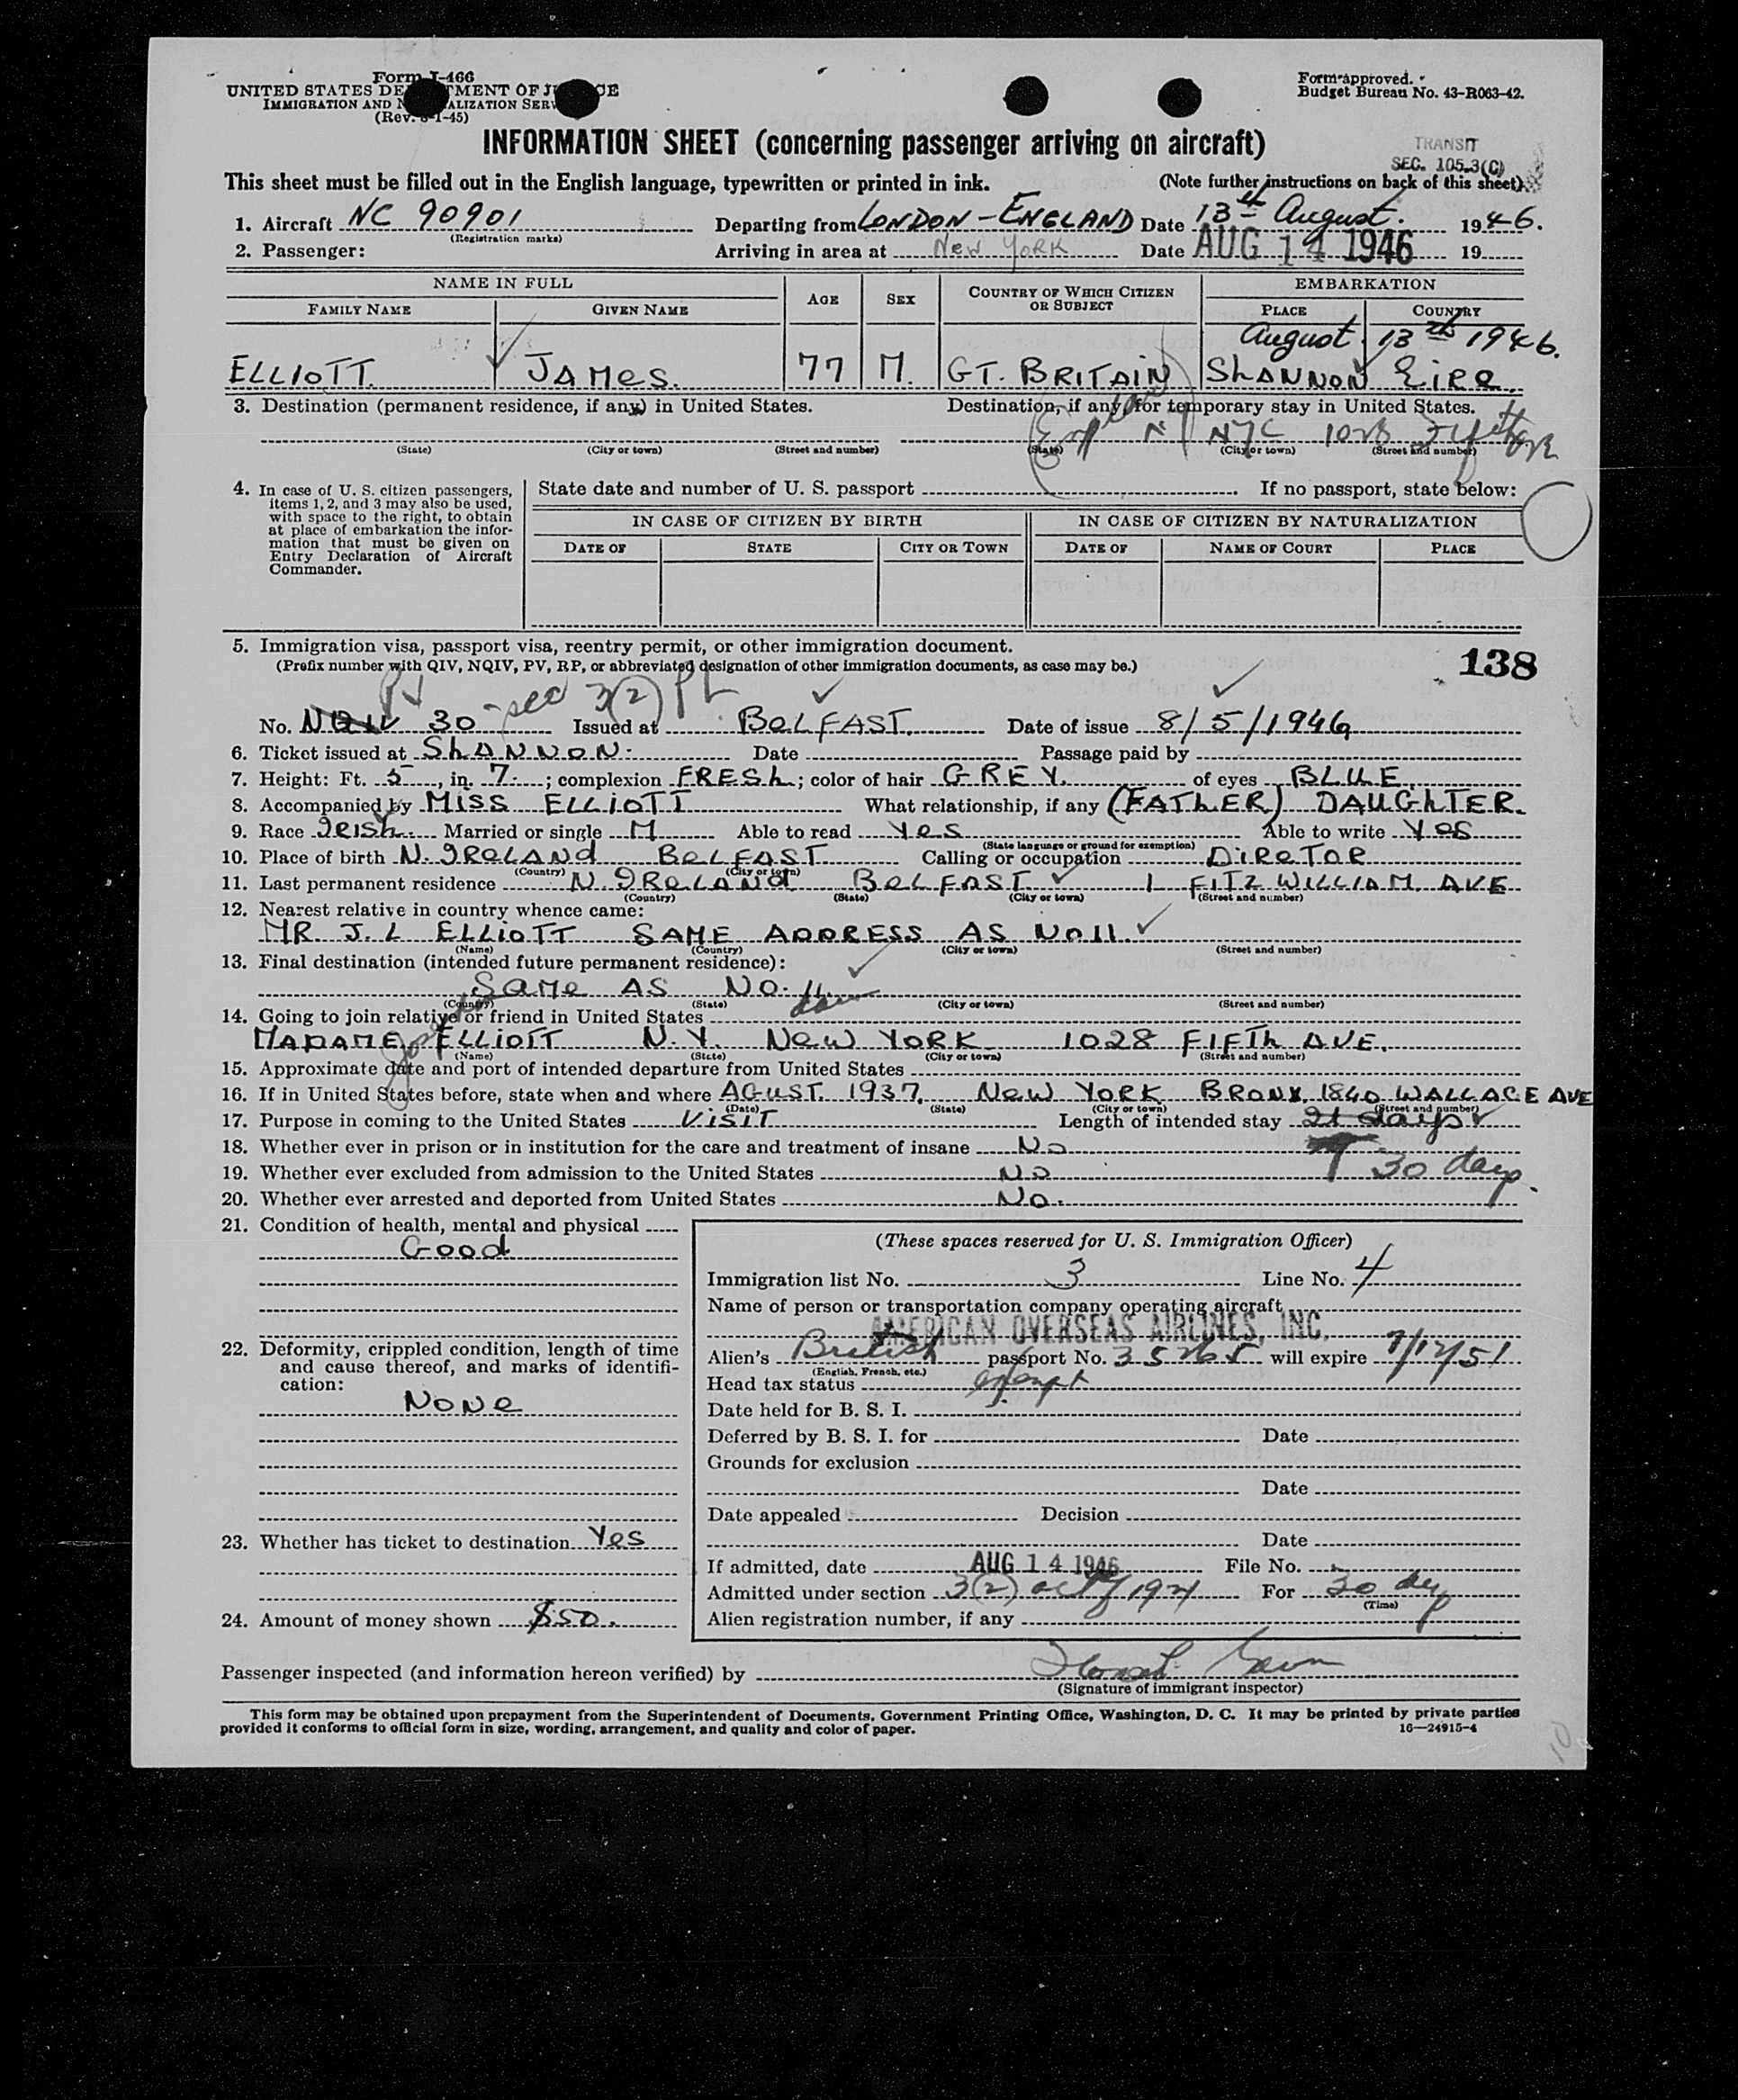 Form I-466
UNITED STATES DE MENT OF J CE
IMMIGRATION AND N ALIZATION SERV
(Rev. 8-1-45)
Form approved.
Budget Bureau No. 43-R063-42.
INFORMATION SHEET (concerning passenger arriving on aircraft)
TRANSIT
SEC. 105.3(C)
This sheet must be filled out in the English language, typewritten or printed in ink. (Note further instructions on back of this sheet)
1. Aircraft NC 90901 Departing from LONDON - ENGLAND Date 13th August. 1946.
(Registration marks)
2. Passenger: Arriving in area at New York Date AUG 14 1946 19
NAME IN FULL AGE SEX COUNTRY OF WHICH CITIZEN OR SUBJECT EMBARKATION
FAMILY NAME GIVEN NAME PLACE COUNTRY
August 13th 1946.
ELLIOTT. JAMES. 77 M. GT. BRITAIN SHANNON EIRE.
3. Destination (permanent residence, if any) in United States. Destination, if any, for temporary stay in United States.
N NYC 1028 Fifth Ave
(State) (City or town) (Street and number) (State) (City or town) (Street and number)
4. In case of U. S. citizen passengers, items 1, 2, and 3 may also be used, with space to the right, to obtain at place of embarkation the information that must be given on Entry Declaration of Aircraft Commander.
State date and number of U. S. passport If no passport, state below:
IN CASE OF CITIZEN BY BIRTH IN CASE OF CITIZEN BY NATURALIZATION
DATE OF STATE CITY OR TOWN DATE OF NAME OF COURT PLACE
5. Immigration visa, passport visa, reentry permit, or other immigration document.
(Prefix number with QIV, NQIV, PV, RP, or abbreviated designation of other immigration documents, as case may be.)
138
PV - sec 3(2)
No. NQIV 30 Issued at BELFAST. Date of issue 8/5/1946
6. Ticket issued at SHANNON. Date Passage paid by
7. Height: Ft. 5, in. 7.; complexion FRESH; color of hair GREY. of eyes BLUE.
8. Accompanied by MISS ELLIOTT What relationship, if any (FATHER) DAUGHTER.
9. Race IRISH. Married or single M Able to read Yes Able to write Yes
(State language or ground for exemption)
10. Place of birth N. IRELAND BELFAST Calling or occupation DIRETOR
(Country) (City or town)
11. Last permanent residence N. IRELAND BELFAST 1 FITZWILLIAM. AVE
(Country) (State) (City or town) (Street and number)
12. Nearest relative in country whence came:
MR. J. L ELLIOTT SAME ADDRESS AS No 11.
(Name) (Country) (City or town) (Street and number)
13. Final destination (intended future permanent residence):
SAME AS No. 11.
(Country) (State) (City or town) (Street and number)
14. Going to join relative or friend in United States
MADAME ELLIOTT N. Y. NEW YORK 1028 FIFTH AVE.
(Name) (State) (City or town) (Street and number)
15. Approximate date and port of intended departure from United States
16. If in United States before, state when and where AGUST. 1937. NEW YORK BRONX. 1840 WALLACE AVE
(Date) (State) (City or town) (Street and number)
17. Purpose in coming to the United States VISIT Length of intended stay 21 days
18. Whether ever in prison or in institution for the care and treatment of insane No
30 days.
19. Whether ever excluded from admission to the United States No
20. Whether ever arrested and deported from United States No.
21. Condition of health, mental and physical
Good
22. Deformity, crippled condition, length of time and cause thereof, and marks of identification:
None
23. Whether has ticket to destination Yes
24. Amount of money shown $50.
(These spaces reserved for U. S. Immigration Officer)
Immigration list No. 3 Line No. 4
Name of person or transportation company operating aircraft
AMERICAN OVERSEAS AIRLINES, INC.
Alien's British passport No. 35265 will expire 7/12/51
(English, French, etc.)
Head tax status exempt
Date held for B. S. I.
Deferred by B. S. I. for Date
Grounds for exclusion
Date
Date appealed Decision
Date
If admitted, date AUG 14 1946 File No.
Admitted under section 3(2) act of 1924 For 30 days
(Time)
Alien registration number, if any
Passenger inspected (and information hereon verified) by
(Signature of immigrant inspector)
This form may be obtained upon prepayment from the Superintendent of Documents, Government Printing Office, Washington, D. C. It may be printed by private parties
provided it conforms to official form in size, wording, arrangement, and quality and color of paper. 16—24915-4